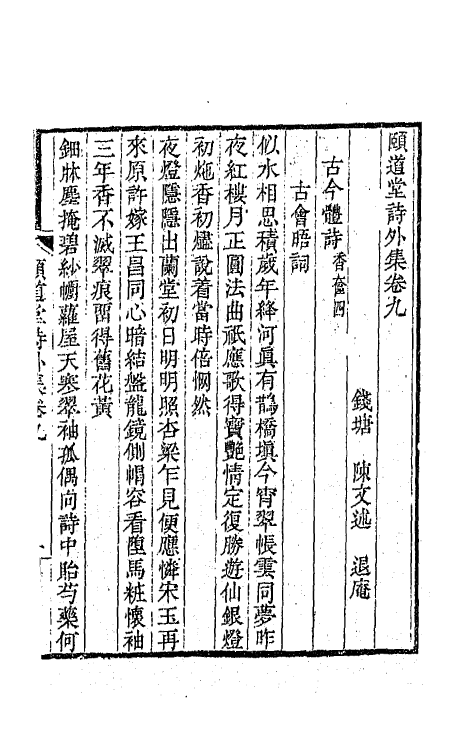 頤道堂詩外集卷九
錢塘 陳文述 退庵
古今體詩香奩四
古會晤詞
似水相思積歲年絳河眞有鵲橋塡今宵翠帳雲同夢昨
夜紅樓月正圓法曲祇應歌得寶艷情定復勝遊仙銀燈
初灺香初燼說着當時倍惘然
夜燈隱隱出蘭堂初日明明照杏梁乍見便應憐宋玉再
來原許嫁王昌同心暗結盤龍鏡側帽容看墮馬粧懷袖
三年香不滅翠痕留得舊花黃
鈿牀塵掩碧紗幮蘿屋天寒翠袖孤偶向詩中貽芍藥何
頤道堂詩外集卷九 一